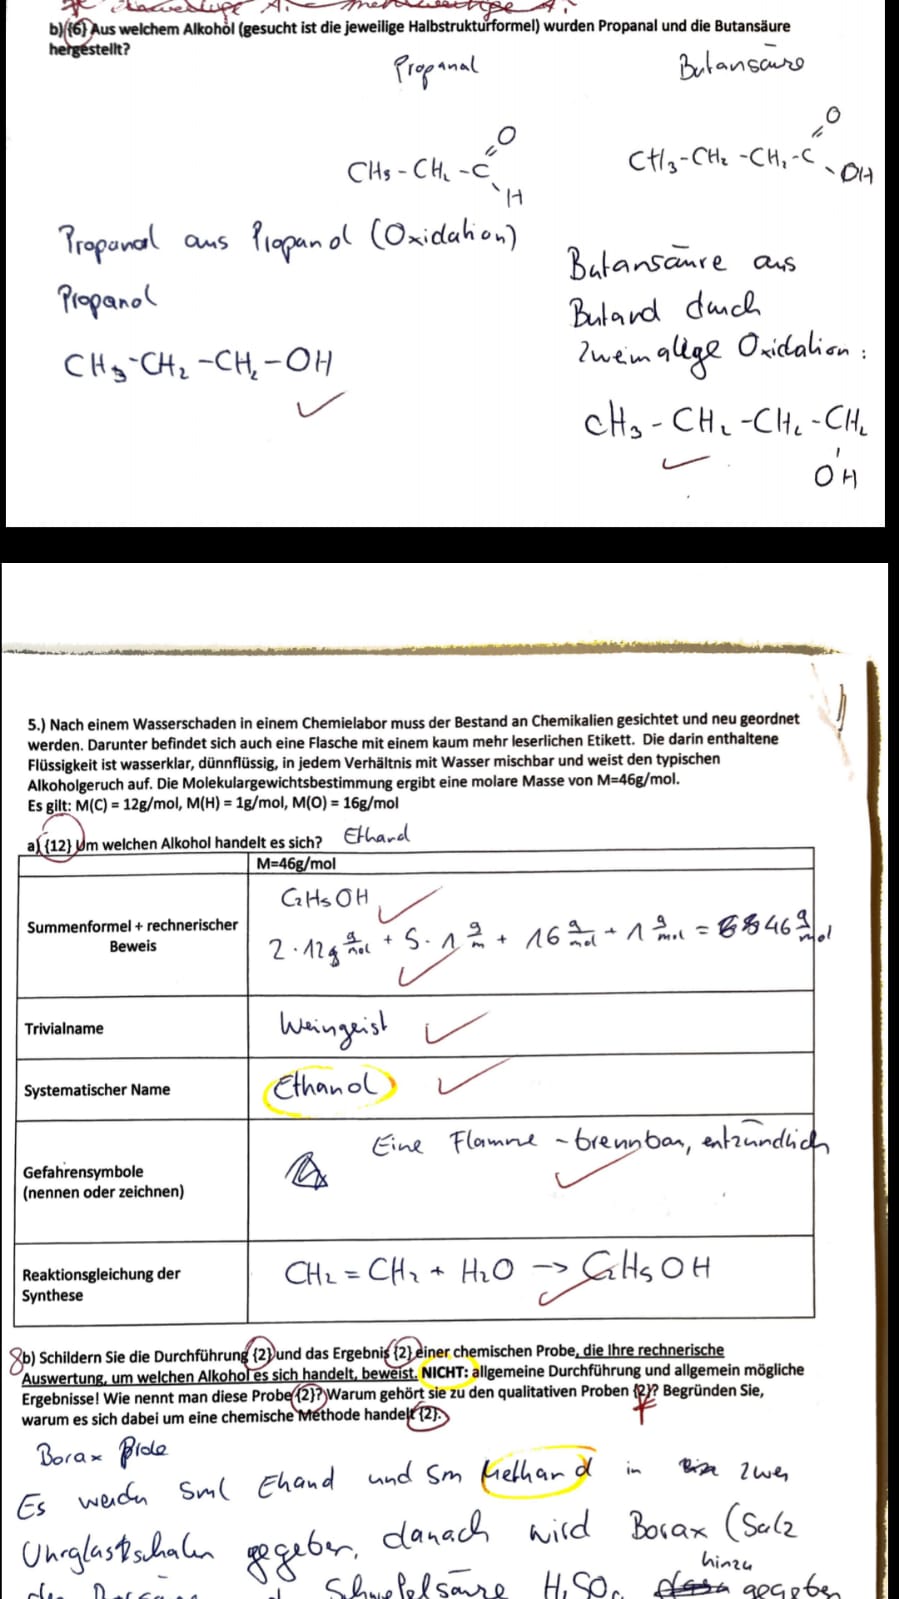 b) {6} Aus welchem Alkohol (gesucht ist die jeweilige Halbstrukturformel) wurden Propanal und die Butansäure
hergestellt?
Propanal
Butansäure
CH3-CH2-C
O
H
CH3-CH2-CH2-C
O
OH
Propanal aus Propanol (Oxidation)
Propanol
CH3-CH2-CH2-OH
Butansäure aus
Butanol durch
zweimalige Oxidation:
CH3-CH2-CH2-CH2
OH
5.) Nach einem Wasserschaden in einem Chemielabor muss der Bestand an Chemikalien gesichtet und neu geordnet
werden. Darunter befindet sich auch eine Flasche mit einem kaum mehr leserlichen Etikett. Die darin enthaltene
Flüssigkeit ist wasserklar, dünnflüssig, in jedem Verhältnis mit Wasser mischbar und weist den typischen
Alkoholgeruch auf. Die Molekulargewichtsbestimmung ergibt eine molare Masse von M=46g/mol.
Es gilt: M(C) = 12g/mol, M(H) = 1g/mol, M(O) = 16g/mol
a) {12} Um welchen Alkohol handelt es sich? Ethanol
M=46g/mol
Summenformel + rechnerischer
Beweis
C2H5OH
2·12g g/mol + 5·1 g/m + 16 g/mol + 1 g/mol = 46 g/mol
Trivialname
Weingeist
Systematischer Name
Ethanol
Gefahrensymbole
(nennen oder zeichnen)
Eine Flamme - brennbar, entzündlich
Reaktionsgleichung der
Synthese
CH2=CH2 + H2O → C2H5OH
8b) Schildern Sie die Durchführung {2} und das Ergebnis {2} einer chemischen Probe, die Ihre rechnerische
Auswertung, um welchen Alkohol es sich handelt, beweist. NICHT: allgemeine Durchführung und allgemein mögliche
Ergebnisse! Wie nennt man diese Probe {2}? Warum gehört sie zu den qualitativen Proben {2}? Begründen Sie,
warum es sich dabei um eine chemische Methode handelt {2}.
Borax
Es werden 5ml Ehanol und 5m Methanol in zwei
Uhrglasschalen gegeben, danach wird Borax (Salz
hinzu
Schwefelsäure H2SO4 gegeben